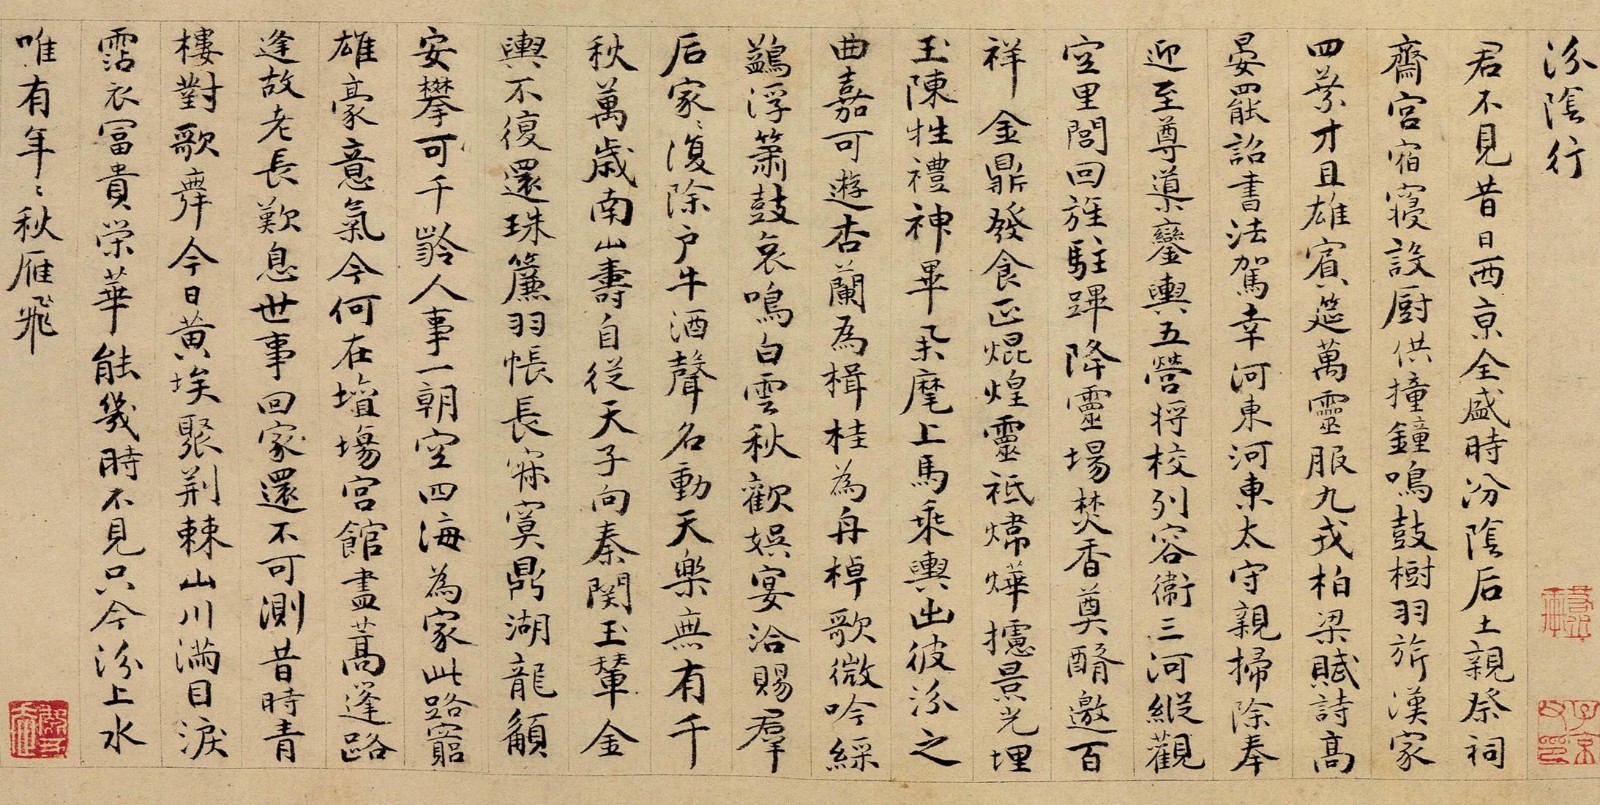 汾陰行
君不見昔日西京全盛時汾陰后土親祭祠
齋宮宿寢設厨供撞鐘鳴鼓樹羽旂漢家
四葉才且雄賓筵萬靈服九戎柏梁賦詩高
晏罷詔書法駕幸河東河東太守親掃除奉
迎至尊導鑾輿五營將校列容衛三河縱觀
空里閭回旌駐蹕降靈場焚香奠醑邀百
祥金鼎發食正焜煌靈祇煒燁攄景光埋
玉陳牲禮神畢麾上馬乘輿出彼汾之
曲嘉可遊杏蘭為楫桂為舟棹歌微吟綵
鷁浮簫鼓哀鳴白雲秋歡娛宴洽賜羣
后家〻復除户牛酒聲名動天樂無有千
秋萬歲南山壽自從天子向秦關玉輦金
輿不復還珠簾羽帳長寂寞鼎湖龍
安攀可千齡人事一朝空四海為家此路窮
雄豪意氣今何在壇場宮館盡蒿蓬路
逢故老長歎息世事回家還不可測昔時青
樓對歌舞今日黄埃聚荆棘山川滿目淚
霑衣冨貴榮華能幾時不見只今汾上水
唯有年〻秋雁飛